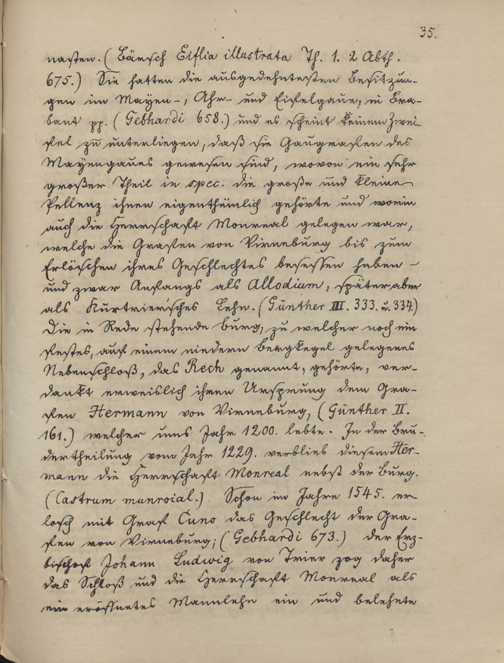 35.
nasten. (Bänsch Eiflia illustrata Th. 1. 2 Abth.
675.) Sie hatten die ausgedehntesten Besitzun-
gen im Mayen-, Ahr- und Eifelgaue, in Bra-
bant pp. (Gebhardi 658.) und es scheint keinem Zwei
fel zu unterliegen, daß sie Gaugrafen des
Mayengaues gewesen sind, wovon ein sehr
großer Theil in spec. die große und kleine
Pellenz ihnen eigenthümlich gehörte und worin
auch die Herrschaft Monreal gelegen war,
welche die Grafen von Virneburg bis zum
Erlöschen ihres Geschlechtes besessen haben -
und zwar Anfangs als Allodium, später aber
als Kurtrier'sches Lehn. (Günther III. 333. u. 334)
Die in Rede stehende Burg, zu welcher noch ein
festes, auf einem niedern Bergkegel gelegenes
Nebenschloß, das Rech genannt, gehörte, ver-
dankt erweislich ihren Ursprung dem Gra-
fen Hermann von Virneburg, (Günther II.
161.) welcher ums Jahr 1200. lebte. In der Brü-
dertheilung vom Jahr 1229. verblieb diesem Her-
mann die Herrschaft Monreal nebst der Burg.
(Castrum munroial.) Schon im Jahre 1545. er-
losch mit Graf Cuno das Geschlecht der Gra-
fen von Virneburg; (Gebhardi 673.) der Erz-
bischof Johann Ludwig von Trier zog daher
das Schloß und die Herrschaft Monreal als
ein eröffnetes Mannlehn ein und belehnte